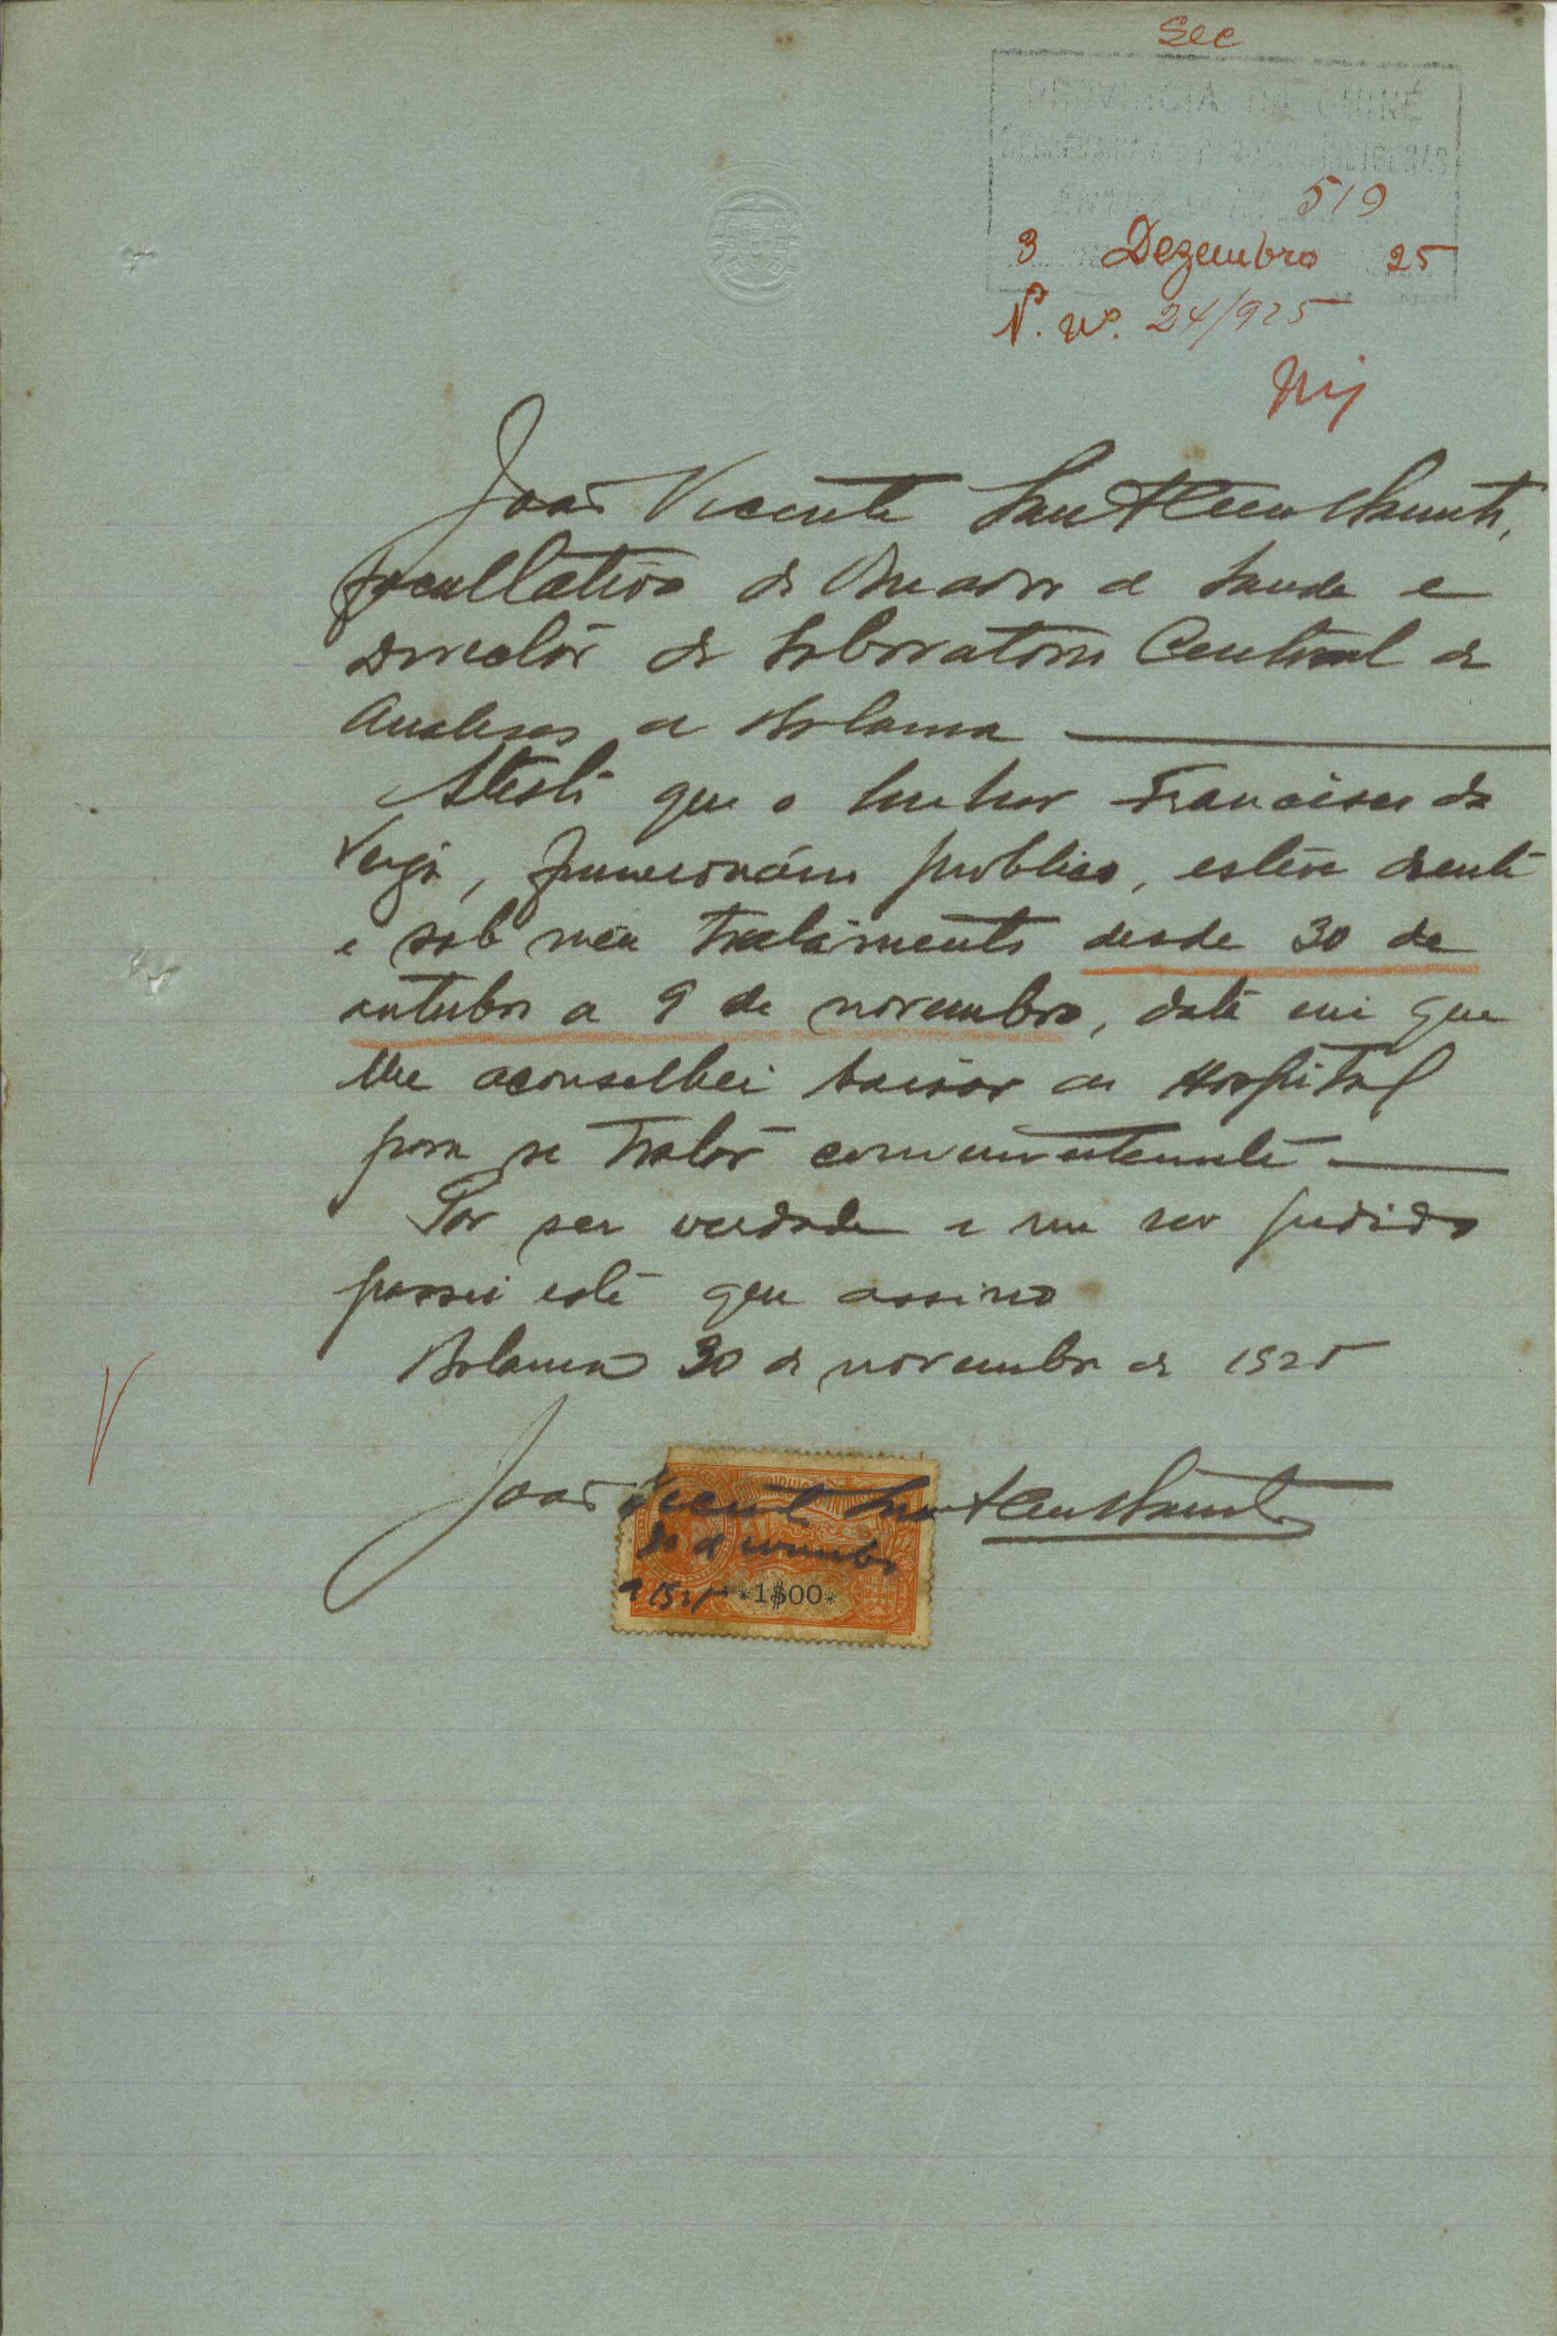 Sec
PROVINCIA DA GUINÉ
519
3 Dezembro 25
Nº. 24/925
João Vicente Sant'Ana Barreto,
facultativo do Quadro de Saude e
Director do Laboratorio Central de
Analises de Bolama
Atesto que o senhor Francisco da
Veiga, funcionário publico, esteve doente
e sob meu tratamento desde 30 de
outubro a 9 de novembro, data em que
lhe aconselhei baixar ao Hospital
para se tratar convenientemente
Por ser verdade e me ser pedido
passei este que assino
Bolama 30 de novembro de 1925
João Vicente Sant'Ana Barreto
30 de novembro
de 1925 *1$00*